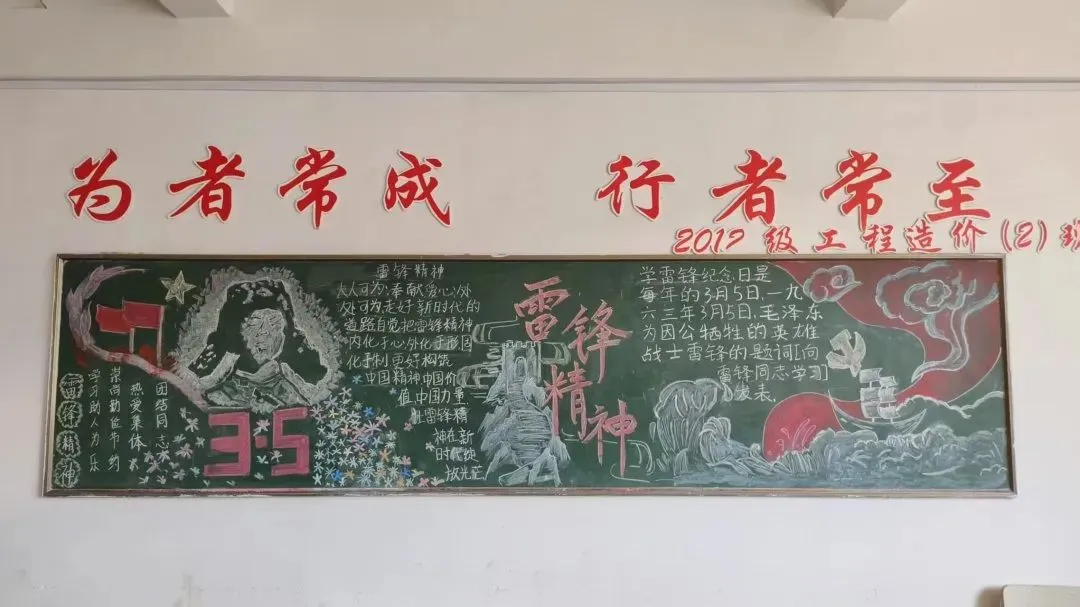 为者常成 行者常至
2017级工程造价(2)班
雷锋精神
学习助人为乐
崇尚勤俭节约
热爱集体
团结同志
3·5
雷锋精神
人人可为,奉献爱心,处
处可为,走好新时代的
道路自觉把雷锋精神
内化于心,外化于形,固
化于制更好构筑
中国精神中国价
值中国力量
让雷锋精
神在新
时代绽
放光芒
雷锋精神
学雷锋纪念日是
每年的3月5日,一九
六三年3月5日,毛泽东
为因公牺牲的英雄
战士雷锋的题词[向
雷锋同志学习]
发表.